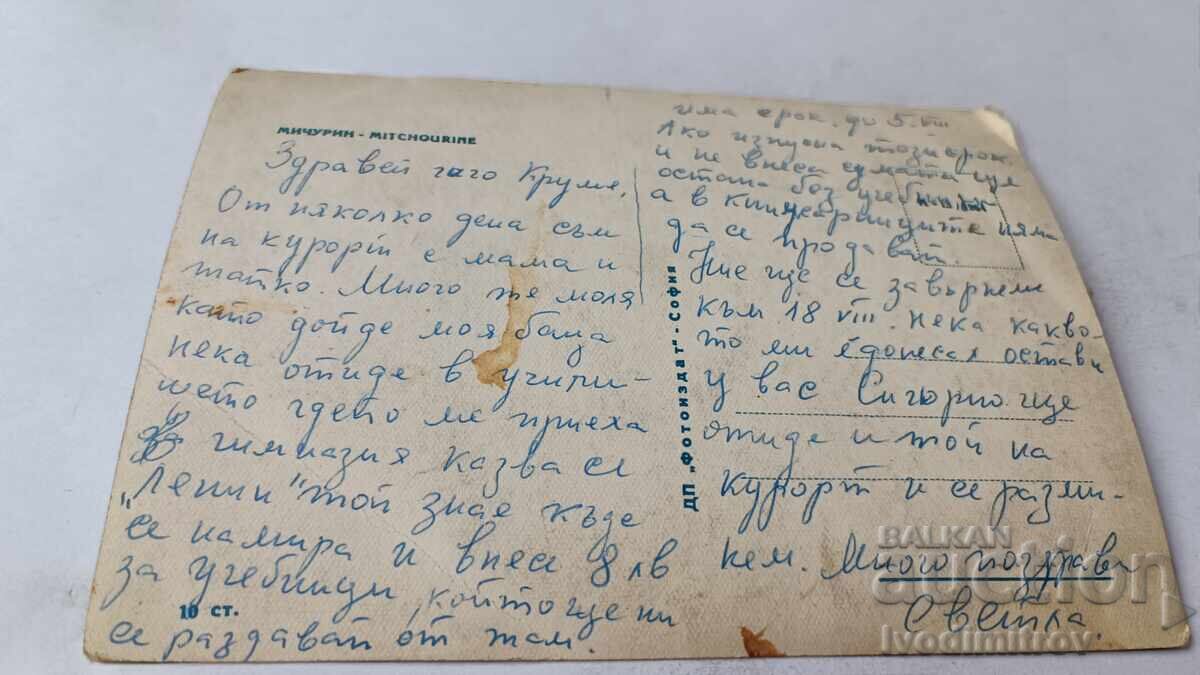 МИЧУРИН - MITCHOURINE
Здравей чичо Круме,
От няколко дена съм
на курорт с мама и
татко. Много те моля
като дойде моя баща
нека отиде в учили-
щето гдето ме приеха
в гимназия казва се
"Ленин" той знае къде
се намира и внесе 8 лв
за учебници, който ще ни
се раздават от там.
10 ст.
има срок до 5.VIII
Ако изпусна този срок
и не внеса сумата ще
остана без учебници
а в книжарниците няма
да се продават.
Ние ще се завърнем
към 18 VIII. Нека какво-
то ми е донесъл остави
у вас Сигурно ще
отиде и той на
курорт и се разми-
нем. Много поздрави
Светла.
ДП „Фотоиздат" - София
BALKAN
auction
ivodimitrov